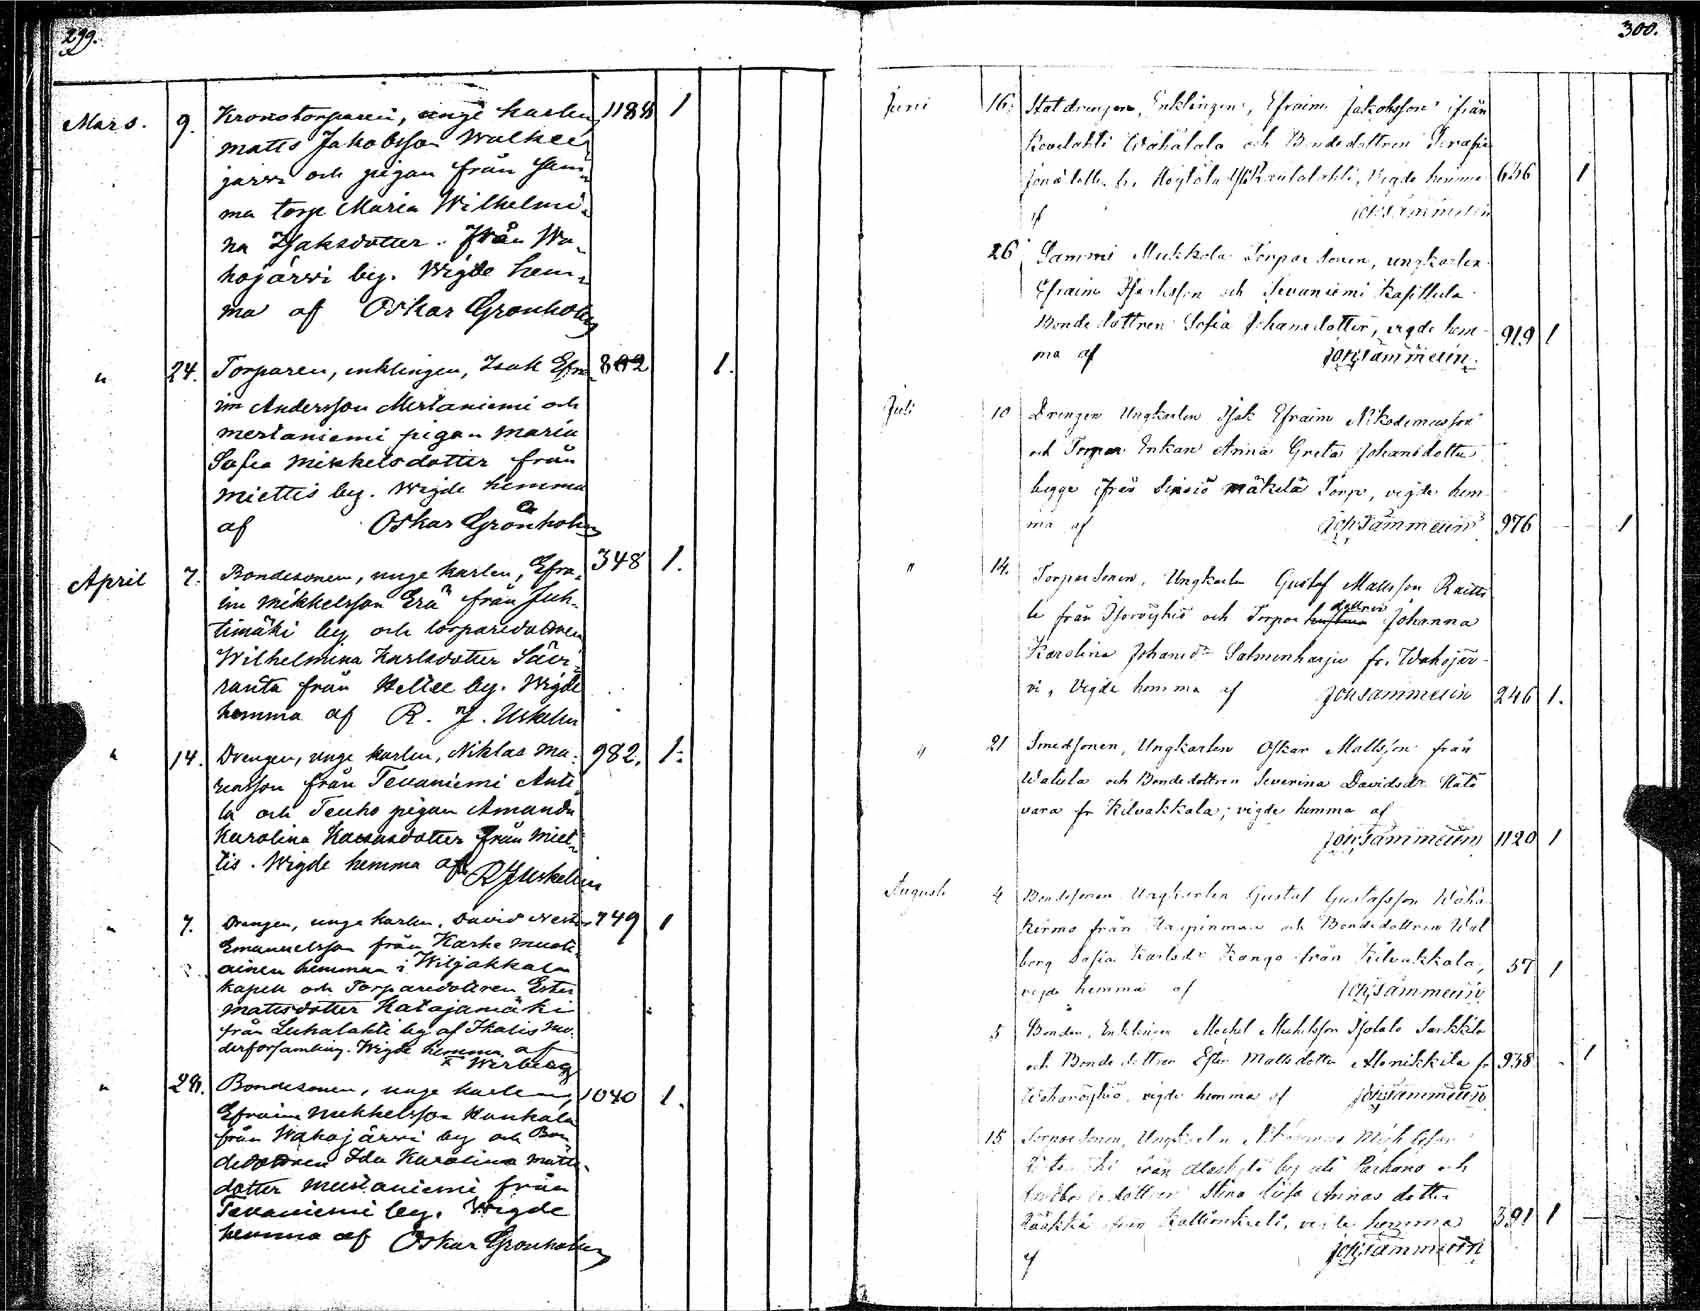 299.
Mars. 9. Kronotorparen, unge karlen, 1188 1
Matts Jakobsson Walkee
järvi och pigan från sam-
ma torp Maria Wilhelmi-
na Isaksdotter. Från Wa-
hojärvi by. Wigde hem-
ma af Oskar Grönholm
" 24. Torparen, enklingen, Isak Efra- 802 1.
im Andersson Mertaniemi och
Mertaniemi pigan Maria
Sofia Mikkelsdotter från
Miettis by. Wigde hemma
af Oskar Grönholm
April 7. Bondesonen, unge karlen, Efra- 348 1.
im Mikkelsson Erä från Juh-
timäki by och torparedottren
Wilhelmina Karlsdotter Säri-
ranta från by. Wigde
hemma af R. J. Uskelin
" 14. Drengen, unge karlen, Niklas Ma- 982. 1.
från Tevaniemi Antti
la och Teuho pigan Amanda
Karolina från Miet-
tis. Wigde hemma af R J Uskelin
" 7. Drengen, unge karlen, David Nestor 749 1
Emanuelsson från Karhe Musti
ainen hemman i Wiljakkala
kapell och Torparedottren Ester
Mattsdotter Katajamäki
från Leukalahti by af Ikalis Mo-
derförsamling. Wigde hemma af
Werberg
" 28. Bondesonen, unge karlen, 1040 1.
Efraim Mikkelsson Hankala
från Wahojärvi by och Bon-
dedottren Ida Karolina Matts-
dotter Mustaniemi från
Tevaniemi by. Wigde
hemma af Oskar Grönholm
300.
Juni 16. Statdrengen, Enklingen, Efraim Jakobsson ifrån
Wähätalo och Bondedottren Serafia
fr. Vigde hemma 636 1
af Joh Sammelin
26 Sammi Mukkola Torpar Sonen, ungkarlen
Efraim Isaksson och Tevaniemi Kasittula
Bondedottren Sofia Johansdotter, vigde hem- 919 1
ma af Joh Sammelin.
Juli 10 Drengen Ungkarlen Isak Efraim Nikodemusson
och Torpar Enkan Anna Greta Johansdotter
begge ifrån Sipsiö Mäkelä Torp, vigde hem-
ma af Joh Sammelin 976 1
" 14. Torpar Sonen, Ungkarlen Gustaf Mattsson
från Isoröyhiö och Torpar dottren Johanna
Karolina Johansdr Salmenharju fr. Wahojär-
vi, Vigde hemma af Joh Sammelin 246 1.
" 21 Smedsonen, Ungkarlen Oskar Mattsson från
Watula och Bondedottren Severina Davidsdr Mätö
vara fr Kilvakkala; vigde hemma af
Joh Sammelin 1120 1
Augusti 4 Bondesonen Ungkarlen Gustaf Gustafsson Wähä-
Kirmo från och Bondedottren Wal
borg Sofia Karlsdr Kango från Kilvakkala, 57 1
vigde hemma af Joh Sammelin
5 Bonden, Enklingen Mickel Mickelsson Isotalo Sarkkila
och Bondedottren Ester Mattsdotter fr 938 1
Waharöyhiö, vigde hemma af Joh Sammelin
15 Torpar Sonen, Ungkarlen
från by uti Parkano och
dottren Stina Lisa Annas dotter
ifrån vigde hemma 391 1
af Joh Sammelin